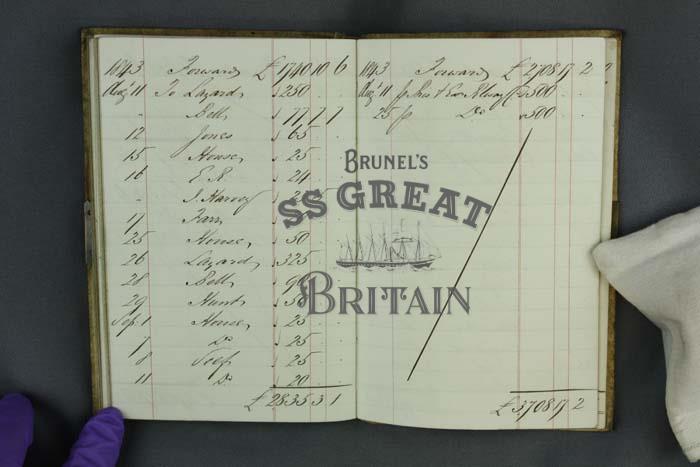 1843 Forward £ 1740 10 6
Aug 11 To Lazard 250
" Bell 77 7 7
12 Jones 65
15 House 25
16 E.R. 24
" J. Harvey
17 Farr
25 House 50
26 Lazard 325
28 Bell
29 Hunt
Sep. 1 House 25
7 Do 25
8 Self 25
11 Do 20
£2835 3 1
1843 Forward £ 2708 17 2
Aug 11 p 500
25 p Do 500
£3708 17 2
BRUNEL'S
SS GREAT
BRITAIN